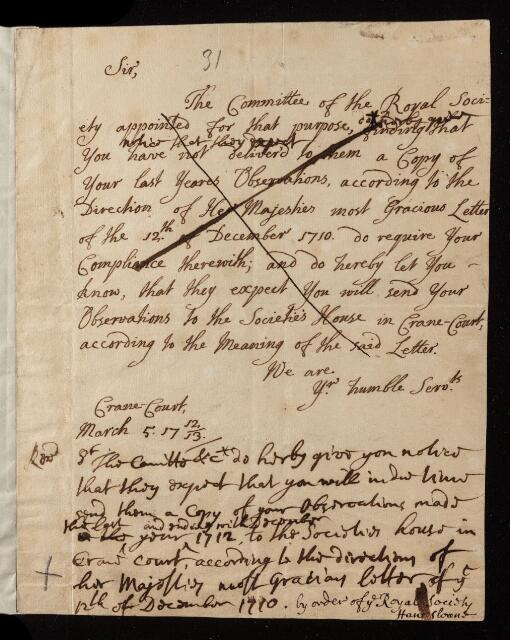 31
Sir,
The Committee of the Royal Soci-
ety appointed for that purpose, finding that
notice that they expect
You have not deliver'd to them a Copy of
Your last Years Observations, according to the
Direction of Her Majesties most Gracious Letter
of the 12.th of December 1710. do require Your
Compliance therewith; and do hereby let You
know, that they expect You will send Your
Observations to the Societies House in Crane-Court,
according to the Meaning of the said Letter.
We are
Yr humble Servts
Crane-Court,
March 5. 17 12/13.
Sr The Comitte &c do herby give you notice
that they expect that you will in due time
send them a Copy of your Observations made
and ending with December
the year 1712 to the Societies house in
Crane court, according to the directions of
her Majesties most Gratious letter of ye
12th of December 1710. by order of ye Royal Society
Hans Sloane